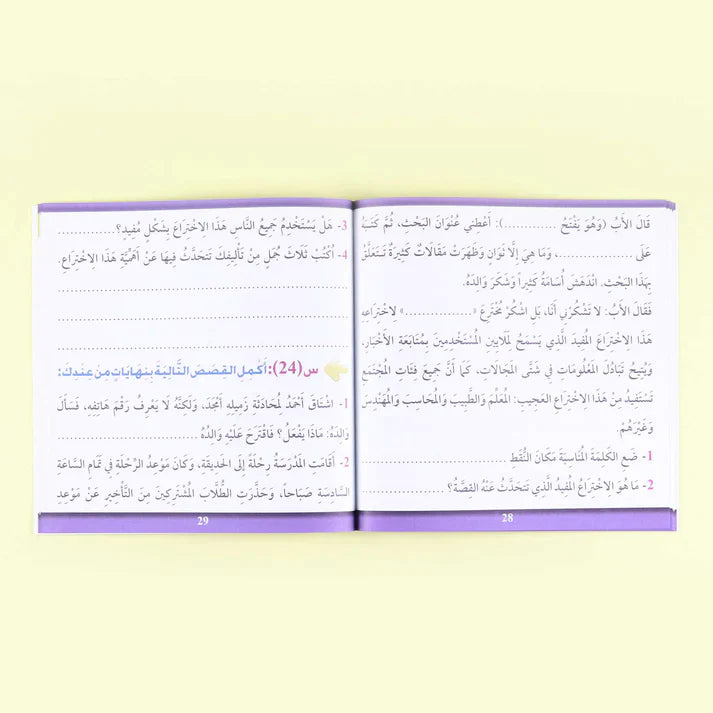 قَالَ الأَبُ (وَهُوَ يَفْتَحُ ............): أَعْطِنِي عُنْوَانَ البَحْثِ، ثُمَّ كَتَبَ
عَلَى .................، وَمَا هِيَ إِلَّا ثَوَانٍ وَظَهَرَتْ مَقَالَاتٌ كَثِيرَةٌ تَتَعَلَّقُ
بِهَذَا البَحْثِ. انْدَهَشَ أُسَامَةُ كَثِيراً وَشَكَرَ وَالِدَهُ.
فَقَالَ الأَبُ: لَا تَشْكُرْنِي أَنَا، بَلِ اشْكُرْ مُخْتَرِعَ «...............» لِاخْتِرَاعِهِ
هَذَا الِاخْتِرَاعَ المُفِيدَ الَّذِي يَسْمَحُ لِمَلَايِينِ المُسْتَخْدِمِينَ بِمُتَابَعَةِ الأَخْبَارِ،
وَيُتِيحُ تَبَادُلَ المَعْلُومَاتِ فِي شَتَّى المَجَالَاتِ، كَمَا أَنَّ جَمِيعَ فِئَاتِ المُجْتَمَعِ
تَسْتَفِيدُ مِنْ هَذَا الِاخْتِرَاعِ العَجِيبِ: المُعَلِّمَ وَالطَّبِيبَ وَالمُحَاسِبَ وَالمُهَنْدِسَ
وَغَيْرَهُمْ.
1- ضَعِ الكَلِمَةَ المُنَاسِبَةَ مَكَانَ النُّقَطِ ..............................
2- مَا هُوَ الِاخْتِرَاعُ المُفِيدُ الَّذِي تَتَحَدَّثُ عَنْهُ القِصَّةُ؟ ....................
28
3- هَلْ يَسْتَخْدِمُ جَمِيعُ النَّاسِ هَذَا الِاخْتِرَاعَ بِشَكْلٍ مُفِيدٍ؟....................
4- اُكْتُبْ ثَلَاثَ جُمَلٍ مِنْ تَأْلِيفِكَ تَتَحَدَّثُ فِيهَا عَنْ أَهَمِّيَّةِ هَذَا الِاخْتِرَاعِ.
............................................................
............................................................
............................................................
س(24): أَكْمِلِ القِصَصَ التَّالِيَةَ بِنِهَايَاتٍ مِنْ عِنْدِكَ:
1- اشْتَاقَ أَحْمَدُ لِمُحَادَثَةِ زَمِيلِهِ أَمْجَدَ، وَلَكِنَّهُ لَا يَعْرِفُ رَقْمَ هَاتِفِهِ، فَسَأَلَ
وَالِدَهُ: مَاذَا يَفْعَلُ؟ فَاقْتَرَحَ عَلَيْهِ وَالِدُهُ ..............................
2- أَقَامَتِ المَدْرَسَةُ رِحْلَةً إِلَى الحَدِيقَةِ، وَكَانَ مَوْعِدُ الرِّحْلَةِ فِي تَمَامِ السَّاعَةِ
السَّادِسَةِ صَبَاحاً، وَحَذَّرَتِ الطُّلَّابَ المُشْتَرِكِينَ مِنَ التَّأْخِيرِ عَنْ مَوْعِدِ
29